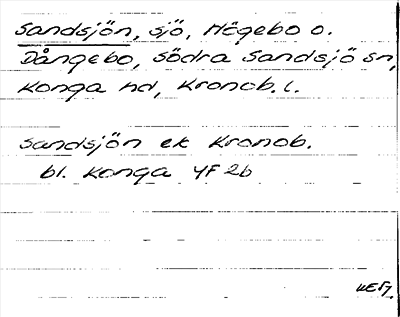 Sandsjön, sjö, Högebo o.
Dångebo, Södra Sandsjö sn,
Konga hd, Kronob. l.
Sandsjön ek Kronob.
bl. Konga 4F 2b